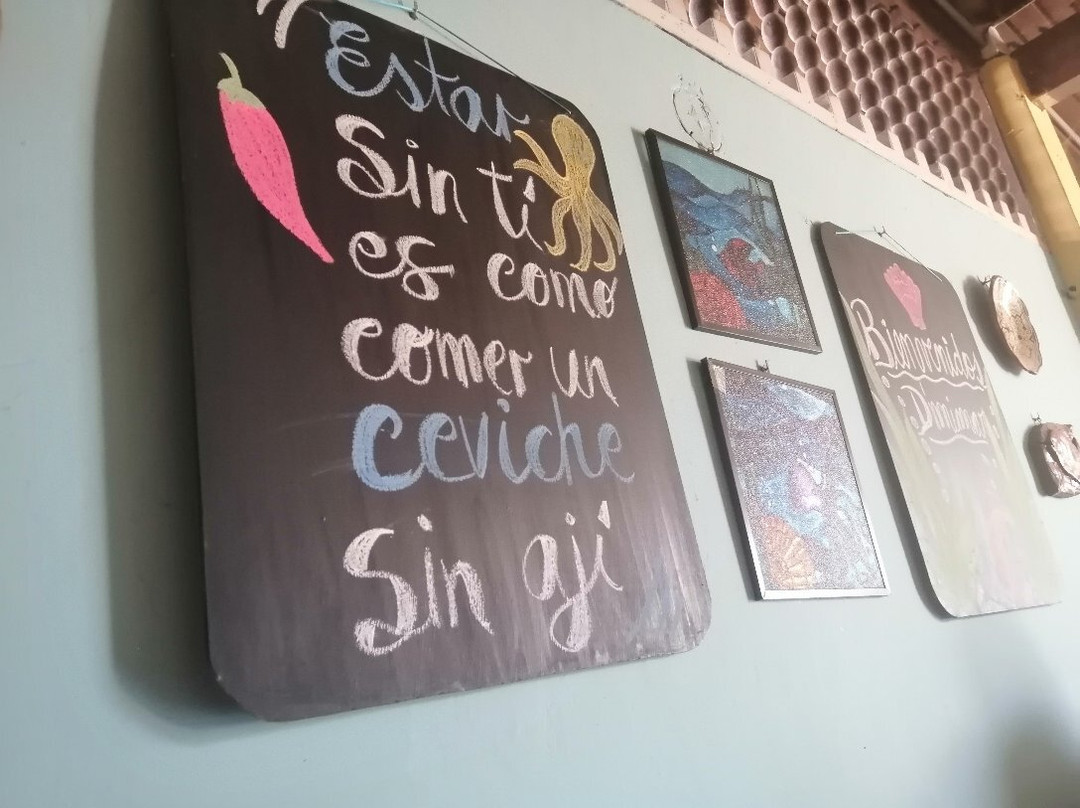 Estar
Sin ti
es como
comer un
ceviche
Sin ají
Bienvenidos